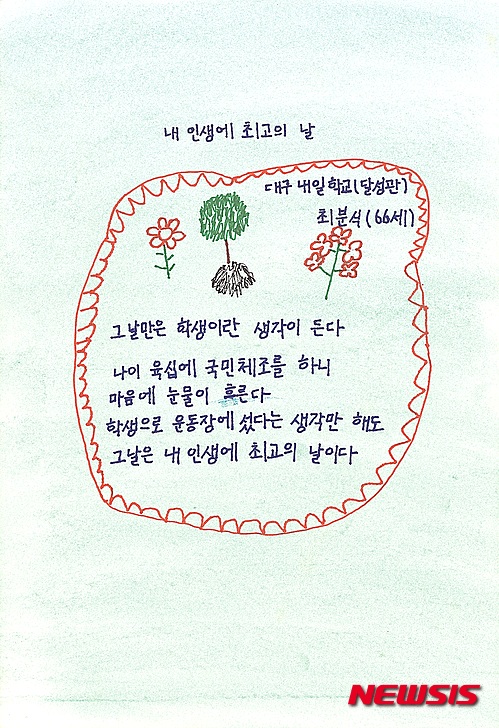 내 인생에 최고의 날
대구 내일학교(달성관)
최분식(66세)
그날만은 학생이란 생각이 든다
나이 육십에 국민체조를 하니
마음에 눈물이 흐른다
학생으로 운동장에 섰다는 생각만 해도
그날은 내 인생에 최고의 날이다
NEWSIS